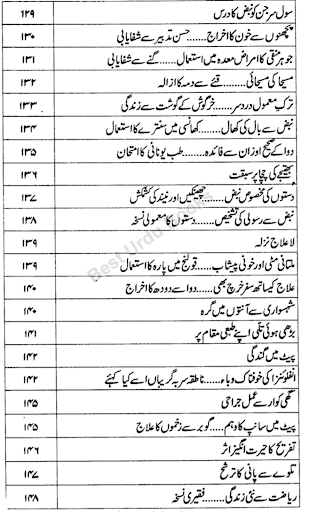 سول سرجن کو نبض کا درس ۱۲۹
پچھنوں سے خون کا اخراج.......حسن تدبیر سے شفایابی ۱۳۰
جوہر منقی کا امراض معدہ میں استعمال.......گنے سے شفایابی ۱۳۱
مسیحا کی مسیحائی.......قئے سے دمہ کا ازالہ ۱۳۲
ترک معمول دردسر.......خرگوش کے گوشت سے زندگی ۱۳۳
نبض سے بال کی کھال.......کھانسی میں سنترے کا استعمال ۱۳۴
دوا کے صحیح اوزان سے فائدہ.......طب یونانی کا امتحان ۱۳۵
بھتیجے کی چچا پر سبقت ۱۳۶
دستوں کی مخصوص نبض.......چھینکیں اور نیند کی کشمکش ۱۳۷
نبض سے رسولی کی تشخیص.......دستوں کا معمولی نسخہ ۱۳۸
لاعلاج نزلہ ۱۳۹
ملتانی مٹی اور خونی پیشاب.......قولنج میں پارہ کا استعمال ۱۳۹
علاج کیساتھ سفر خرچ بھی.......دوا سے دودھ کا اخراج ۱۴۰
شہسواری سے آنتوں میں گرہ ۱۴۰
بڑھی ہوئی تلی اپنے طبعی مقام پر ۱۴۱
پیٹ میں گندگی ۱۴۲
انفلوئنزا کی خوفناک وباء.......ناطقہ سر بہ گریباں اسے کیا کہئے ۱۴۲
گھی کوار سے عمل جراحی ۱۴۵
پیٹ میں سانپ کا وہم.......گوبر سے زخموں کا علاج ۱۴۵
تفریح کا حیرت انگیز اثر ۱۴۶
تلوے سے پانی کا ترشح ۱۴۷
ریاضت سے نئی زندگی.......فقیری نسخہ ۱۴۸
Best Urdu Books